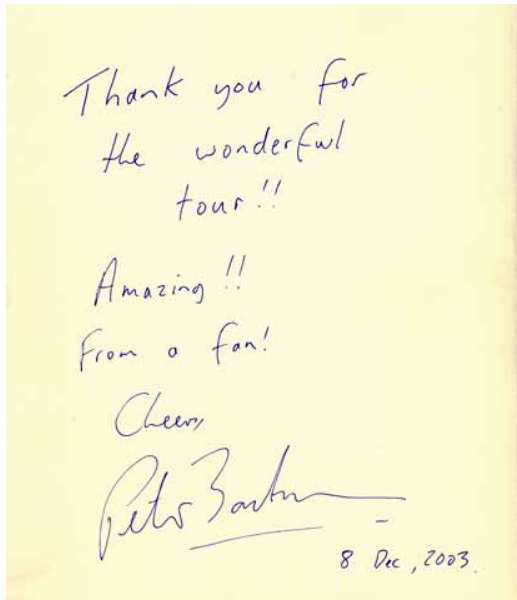 Thank you for
the wonderful
tour!!
Amazing!!
From a fan!
Cheers,
Peter
8 Dec, 2003.